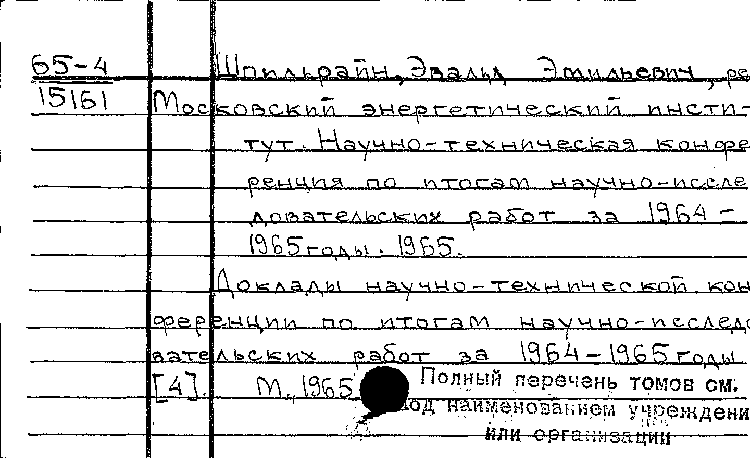 65-4
15161
Шпильрайн, Эвальд Эмильевич, ре
Московский энергетический инсти-
тут. Научно-техническая конфе
ренция по итогам научно-иссле
довательских работ за 1964-
1965 годы. 1965.
Доклады научно-технической кон
ференции по итогам научно-исследо
вательских работ за 1964-1965 годы
[4]. М., 1965
Полный перечень томов см.
под наименованием учреждени
или организации